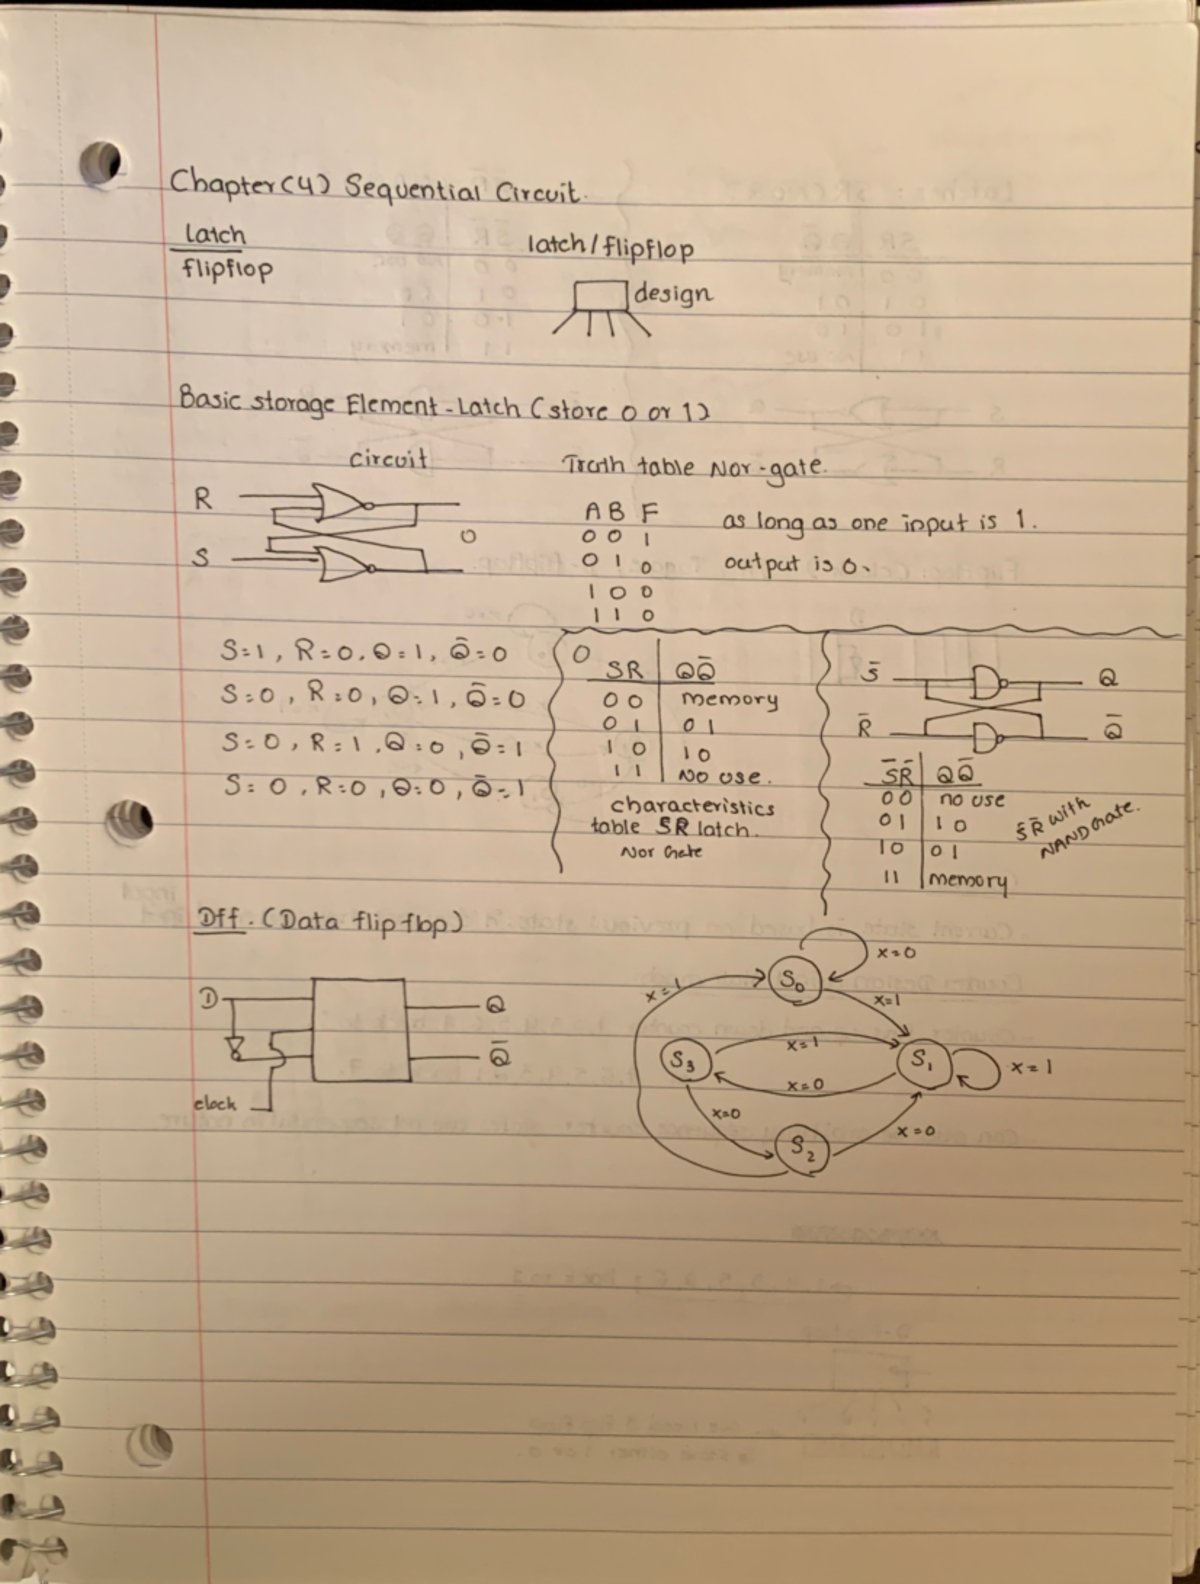 Chapter(4) Sequential Circuit.
latch
flipflop
latch/flipflop
design
Basic storage Element - Latch (store 0 or 1)
circuit
R
S
0
Truth table Nor-gate.
A B F
0 0 1
0 1 0
1 0 0
1 1 0
as long as one input is 1.
output is 0.
S=1, R=0, Q=1, Q̄=0
S=0, R=0, Q=1, Q̄=0
S=0, R=1, Q=0, Q̄=1
S=0, R=0, Q=0, Q̄=1
0
SR | QQ̄
0 0 | memory
0 1 | 0 1
1 0 | 1 0
1 1 | No use.
characteristics
table SR latch.
Nor Gate
S̄ Q
R̄ Q̄
S̄R̄ | QQ̄
00 | no use
01 | 10
10 | 01
11 | memory
S̄R̄ with
NAND Gate.
Dff. (Data flip flop)
D
Q
Q̄
clock
S0
x=0
x=1
x=1
S3
x=1
S1
x=1
x=0
x=0
S2
x=0